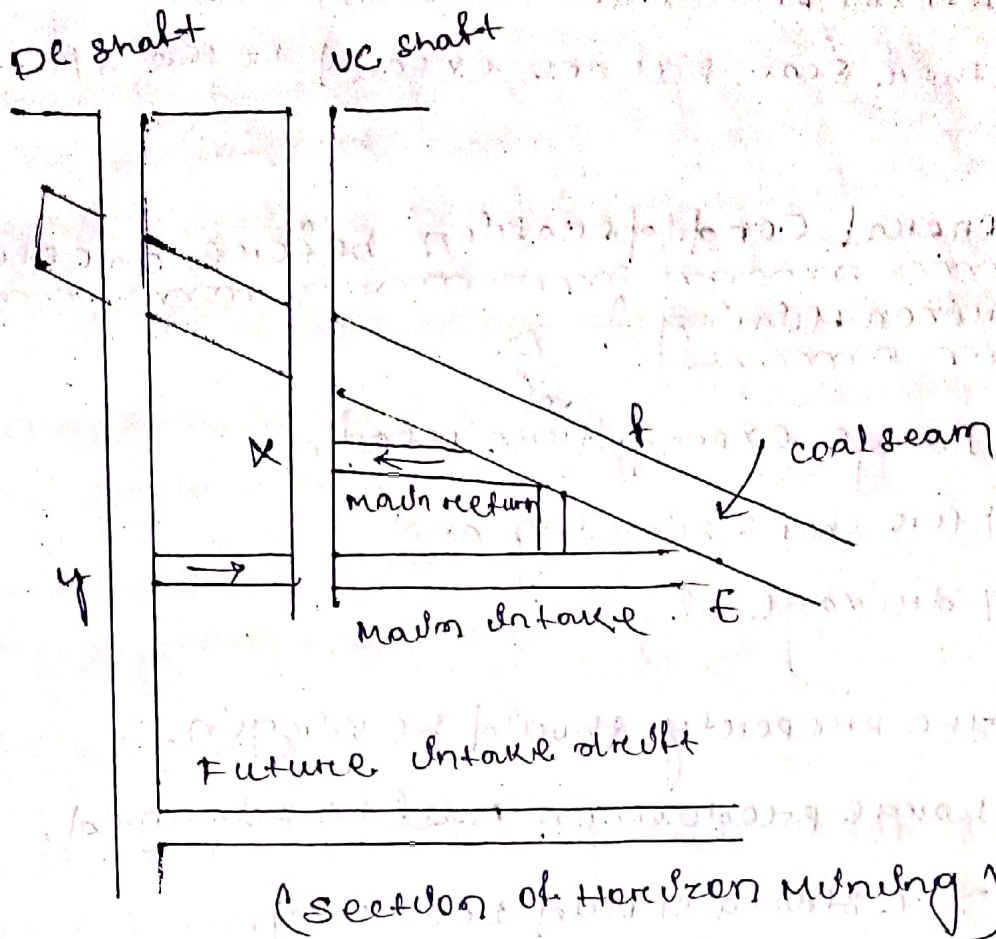 DC shaft
UC shaft
X
f
coal seam
main return
Y
E
Main intake
Future intake drift
(section of Horizon Mining)